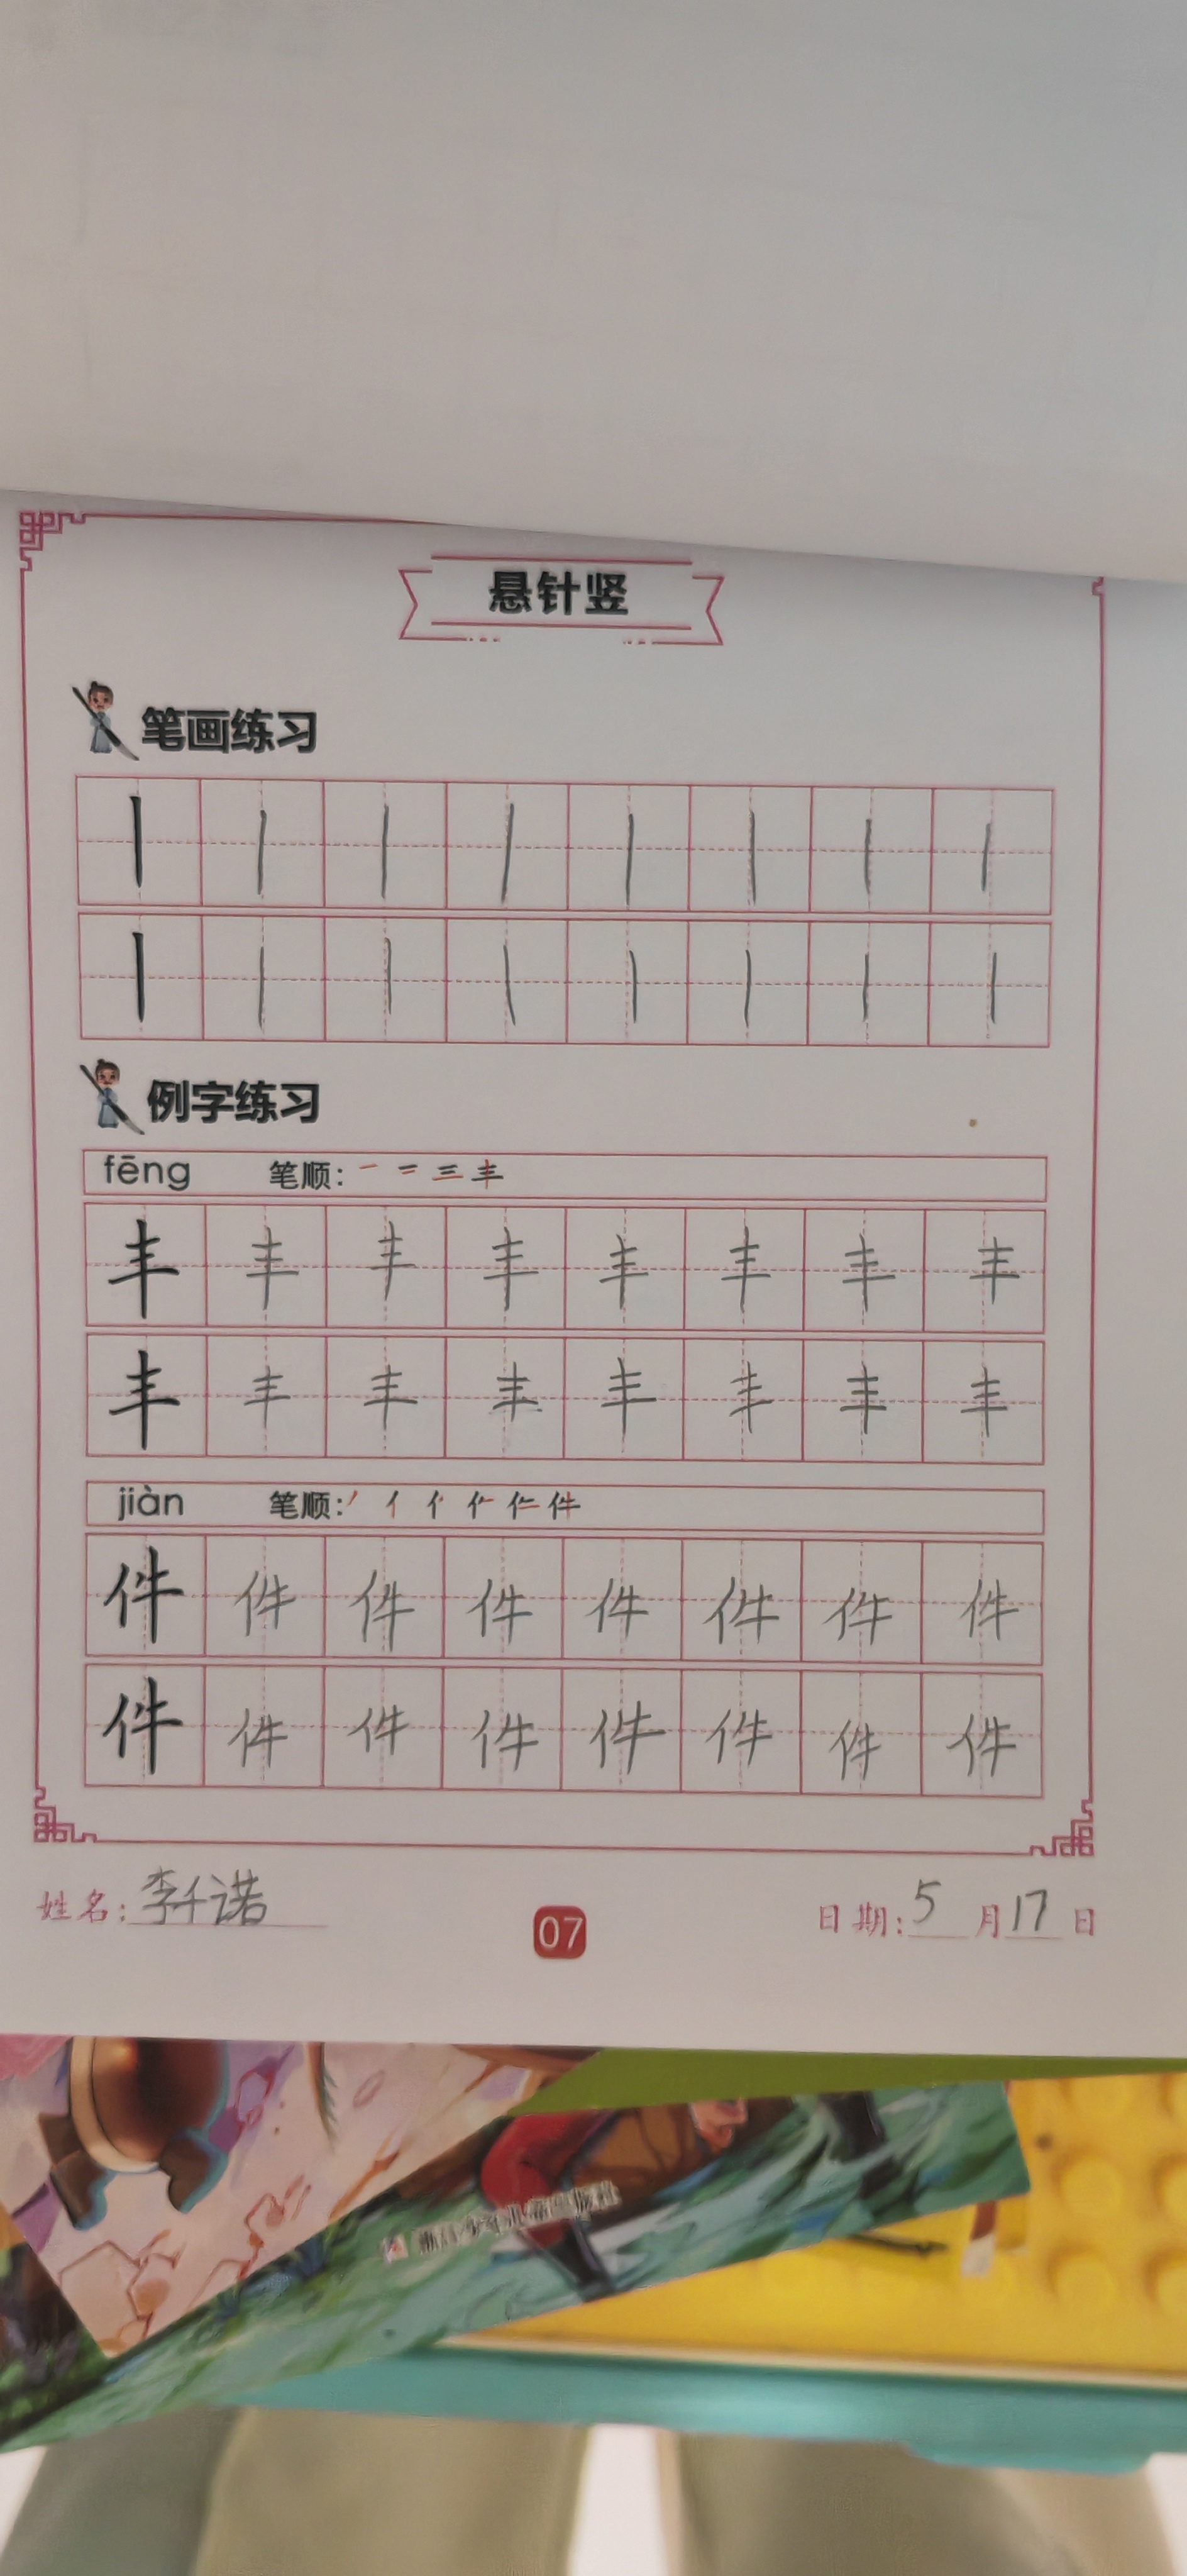 悬针竖
笔画练习
丨丨丨丨丨丨丨丨
丨丨丨丨丨丨丨丨
例字练习
fēng 笔顺: 一 二 三 丰
丰丰丰丰丰丰丰丰
丰丰丰丰丰丰丰丰
jiàn 笔顺:
件件件件件件件件
件件件件件件件件
姓名:李千诺 07 日期:5月17日